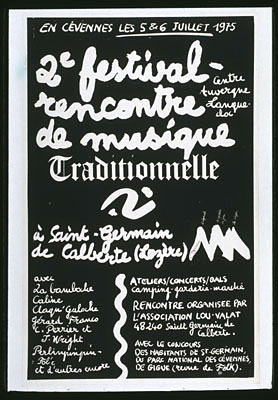 EN CÉVENNES LES 5 & 6 JUILLET 1975
2e festival-
rencontre
de musique
Traditionnelle
Centre
Auvergne
Langue-
doc
à Saint-Germain
de Calberte (Lozère)
avec
La bamboche
Caline
Claque Galoche
Gérard Franco
C. Perrier et
J. Wright
Perlinpinpin-
Fòlc
et d'autres encore
ATELIERS/CONCERTS/BALS
camping-garderie-marché
RENCONTRE ORGANISEE PAR
L'ASSOCIATION LOU-VALAT
48240 Saint Germain de
Calberte
AVEC LE CONCOURS
DES HABITANTS DE ST GERMAIN,
DU PARC NATIONAL DES CÉVENNES,
DE GIGUE (revue de Folk).